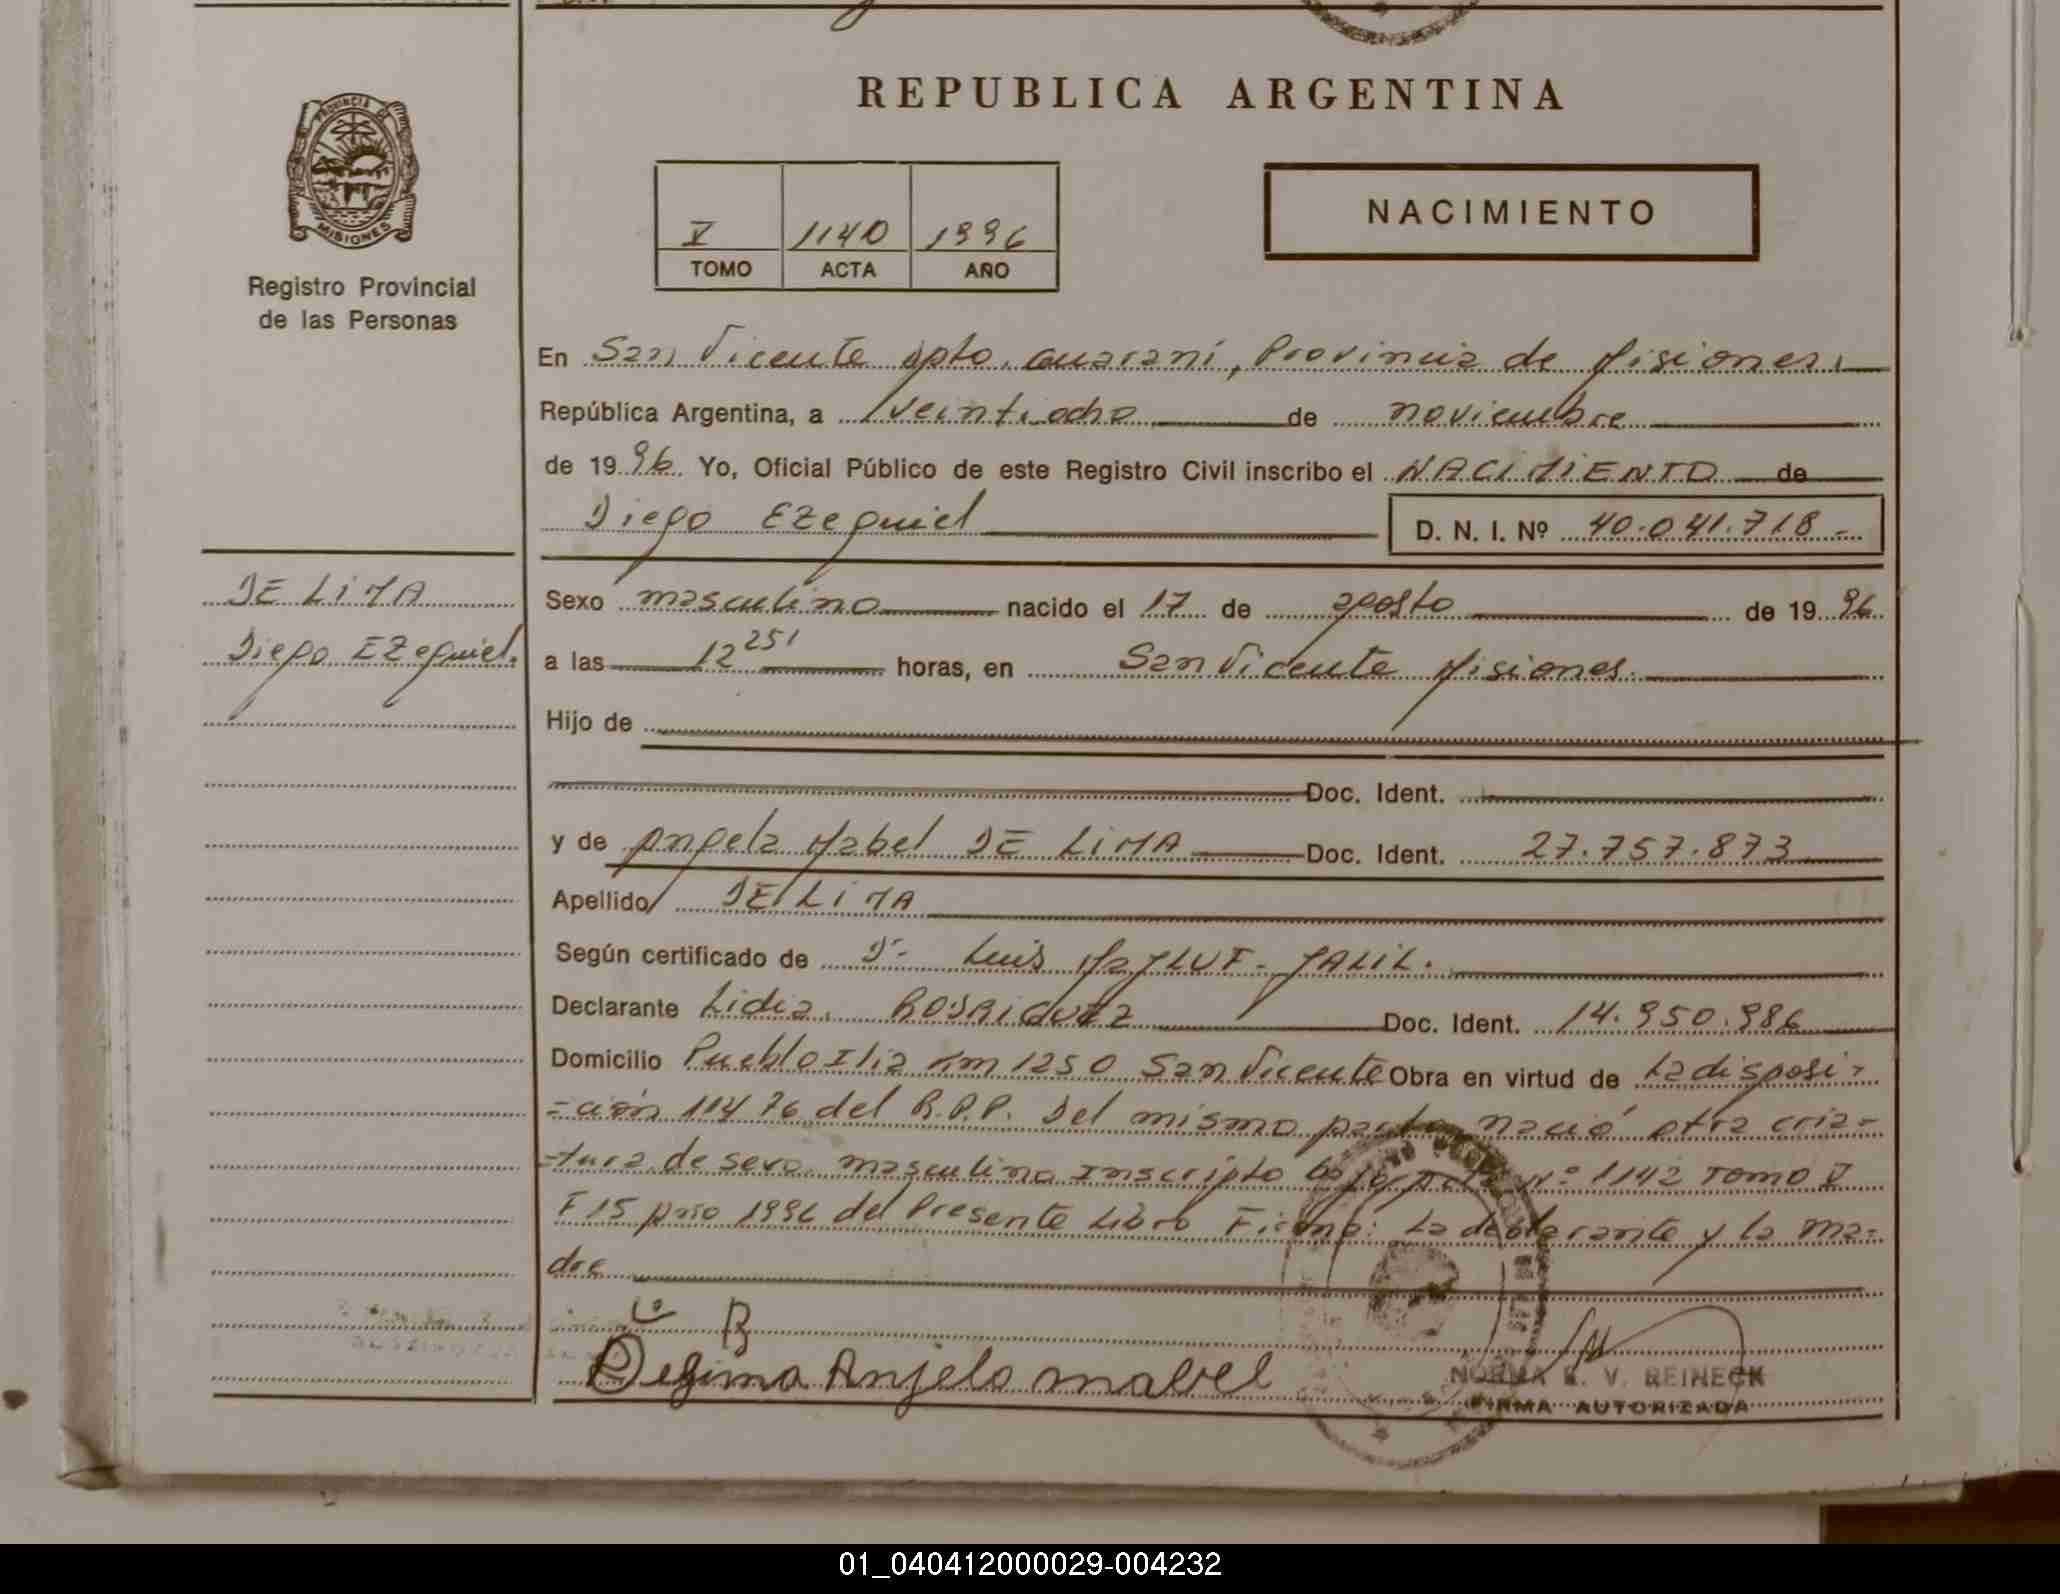 REPUBLICA ARGENTINA
PROVINCIA DE
MISIONES
Registro Provincial
de las Personas
V 1140 1996
TOMO ACTA AÑO
NACIMIENTO
En San Vicente Dpto. Guaraní, Provincia de Misiones.
República Argentina, a veintiocho de noviembre
de 1996 Yo, Oficial Público de este Registro Civil inscribo el NACIMIENTO de
Diego Ezequiel D. N. I. Nº 40.041.718-
DE LIMA
Diego Ezequiel.
Sexo masculino nacido el 17 de agosto de 1996
a las 12 25' horas, en San Vicente Misiones.
Hijo de
Doc. Ident.
y de Angela Mabel DE LIMA Doc. Ident. 27.757.873
Apellido DE LIMA
Según certificado de Dr. Luis JALIL.
Declarante Lidia RODRIGUEZ Doc. Ident. 14.950.986
Domicilio Pueblo Ilia Km 1250 San Vicente Obra en virtud de La disposi-
-ción 114/76 del R.P.P. Del mismo parto nació otra cria-
-tura de sexo masculino Inscripto bajo acta Nº 1142 Tomo V
F 15 año 1996 del Presente Libro Firma: La declarante y la ma-
dre
L R
Delima Anjela mabel
NORMA V. REINECK
FIRMA AUTORIZADA
01_040412000029-004232